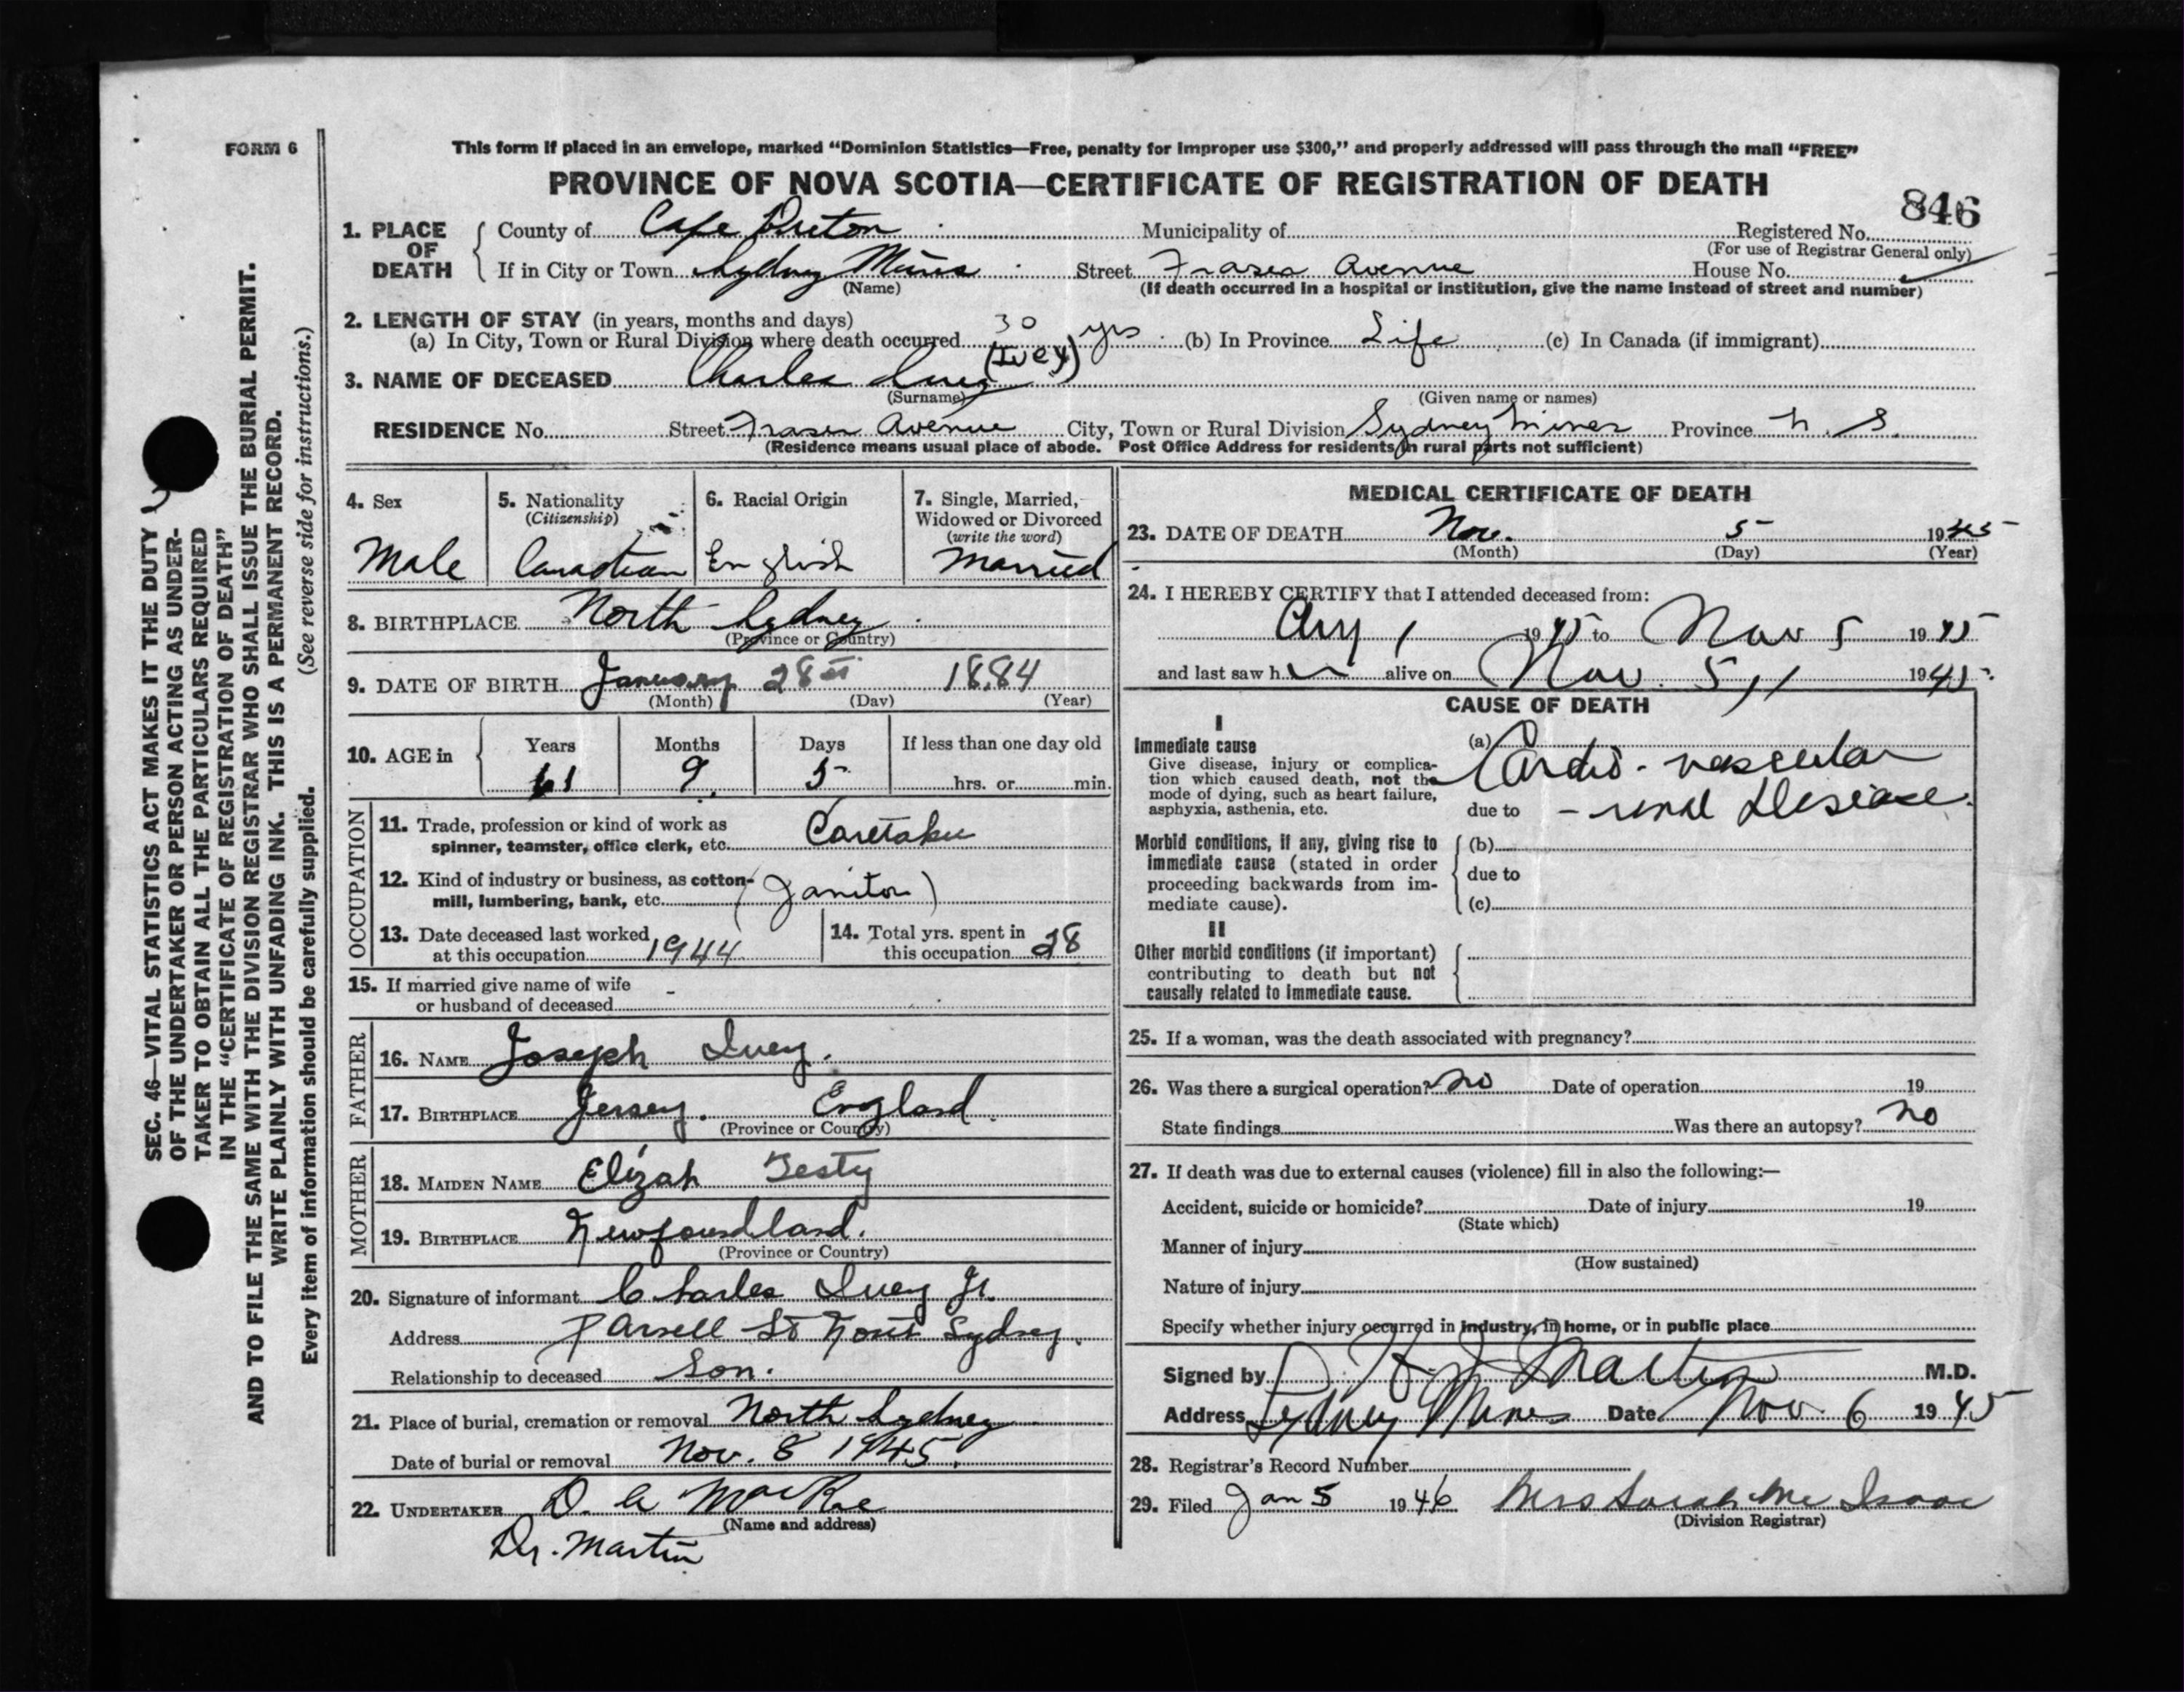 FORM 6
This form if placed in an envelope, marked “Dominion Statistics—Free, penalty for improper use $300,” and properly addressed will pass through the mail “FREE”
PROVINCE OF NOVA SCOTIA—CERTIFICATE OF REGISTRATION OF DEATH
846
1. PLACE OF DEATH { County of Cape Breton Municipality of Registered No.
(For use of Registrar General only)
If in City or Town Sydney Mines Street Fraser Avenue House No.
(Name) (If death occurred in a hospital or institution, give the name instead of street and number)
2. LENGTH OF STAY (in years, months and days)
(a) In City, Town or Rural Division where death occurred 30 yrs (b) In Province Life (c) In Canada (if immigrant)
3. NAME OF DECEASED Charles Ivey (Ivey)
(Surname) (Given name or names)
RESIDENCE No. Street Fraser Avenue City, Town or Rural Division Sydney Mines Province N. S.
(Residence means usual place of abode. Post Office Address for residents in rural parts not sufficient)
4. Sex
Male
5. Nationality
(Citizenship)
Canadian
6. Racial Origin
English
7. Single, Married, Widowed or Divorced
(write the word)
Married
8. BIRTHPLACE North Sydney
(Province or Country)
9. DATE OF BIRTH January 28 1884
(Month) (Day) (Year)
10. AGE in { Years Months Days If less than one day old
61 9 5 hrs. or min.
OCCUPATION
11. Trade, profession or kind of work as
spinner, teamster, office clerk, etc. Caretaker
12. Kind of industry or business, as cotton-
mill, lumbering, bank, etc. (Janitor)
13. Date deceased last worked
at this occupation 1944
14. Total yrs. spent in
this occupation 28
15. If married give name of wife -
or husband of deceased
FATHER
16. NAME Joseph Ivey.
17. BIRTHPLACE Jersey. England.
(Province or Country)
MOTHER
18. MAIDEN NAME Elizah Testy
19. BIRTHPLACE Newfoundland.
(Province or Country)
20. Signature of informant Charles Ivey Jr.
Address Parsell St North Sydney.
Relationship to deceased Son.
21. Place of burial, cremation or removal North Sydney
Date of burial or removal Nov. 8 1945.
22. UNDERTAKER D. A MacRae
(Name and address)
Dr. Martin
MEDICAL CERTIFICATE OF DEATH
23. DATE OF DEATH Nov. 5 1945
(Month) (Day) (Year)
24. I HEREBY CERTIFY that I attended deceased from:
1 1945 to Nov 5 1945
and last saw h alive on Nov. 5 1945.
CAUSE OF DEATH
I
Immediate cause
Give disease, injury or complica-
tion which caused death, not the
mode of dying, such as heart failure,
asphyxia, asthenia, etc.
(a) Cardio-vascular
due to - renal disease.
Morbid conditions, if any, giving rise to
immediate cause (stated in order
proceeding backwards from im-
mediate cause).
(b)
due to
(c)
II
Other morbid conditions (if important)
contributing to death but not
causally related to immediate cause.
25. If a woman, was the death associated with pregnancy?
26. Was there a surgical operation? no Date of operation 19
State findings Was there an autopsy? no
27. If death was due to external causes (violence) fill in also the following:—
Accident, suicide or homicide? Date of injury 19
(State which)
Manner of injury
(How sustained)
Nature of injury
Specify whether injury occurred in industry, in home, or in public place
Signed by Martin M.D.
Address Sydney Mines Date Nov. 6 1945
28. Registrar's Record Number
29. Filed Jan 5 1946 Mrs Sarah Mc Isaac
(Division Registrar)
SEC. 46—VITAL STATISTICS ACT MAKES IT THE DUTY
OF THE UNDERTAKER OR PERSON ACTING AS UNDER-
TAKER TO OBTAIN ALL THE PARTICULARS REQUIRED
IN THE “CERTIFICATE OF REGISTRATION OF DEATH”
AND TO FILE THE SAME WITH THE DIVISION REGISTRAR WHO SHALL ISSUE THE BURIAL PERMIT.
WRITE PLAINLY WITH UNFADING INK. THIS IS A PERMANENT RECORD.
Every item of information should be carefully supplied. (See reverse side for instructions.)